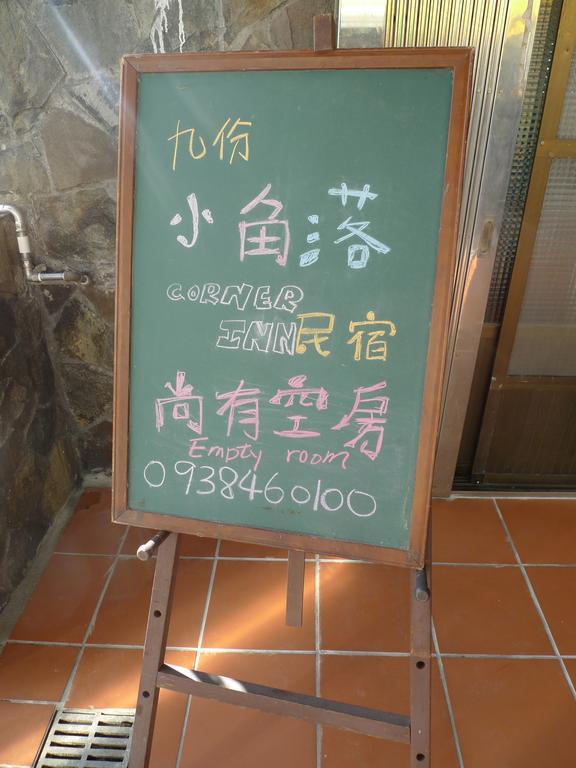 九份
小角落
CORNER
INN民宿
尚有空房
Empty room
0938460100